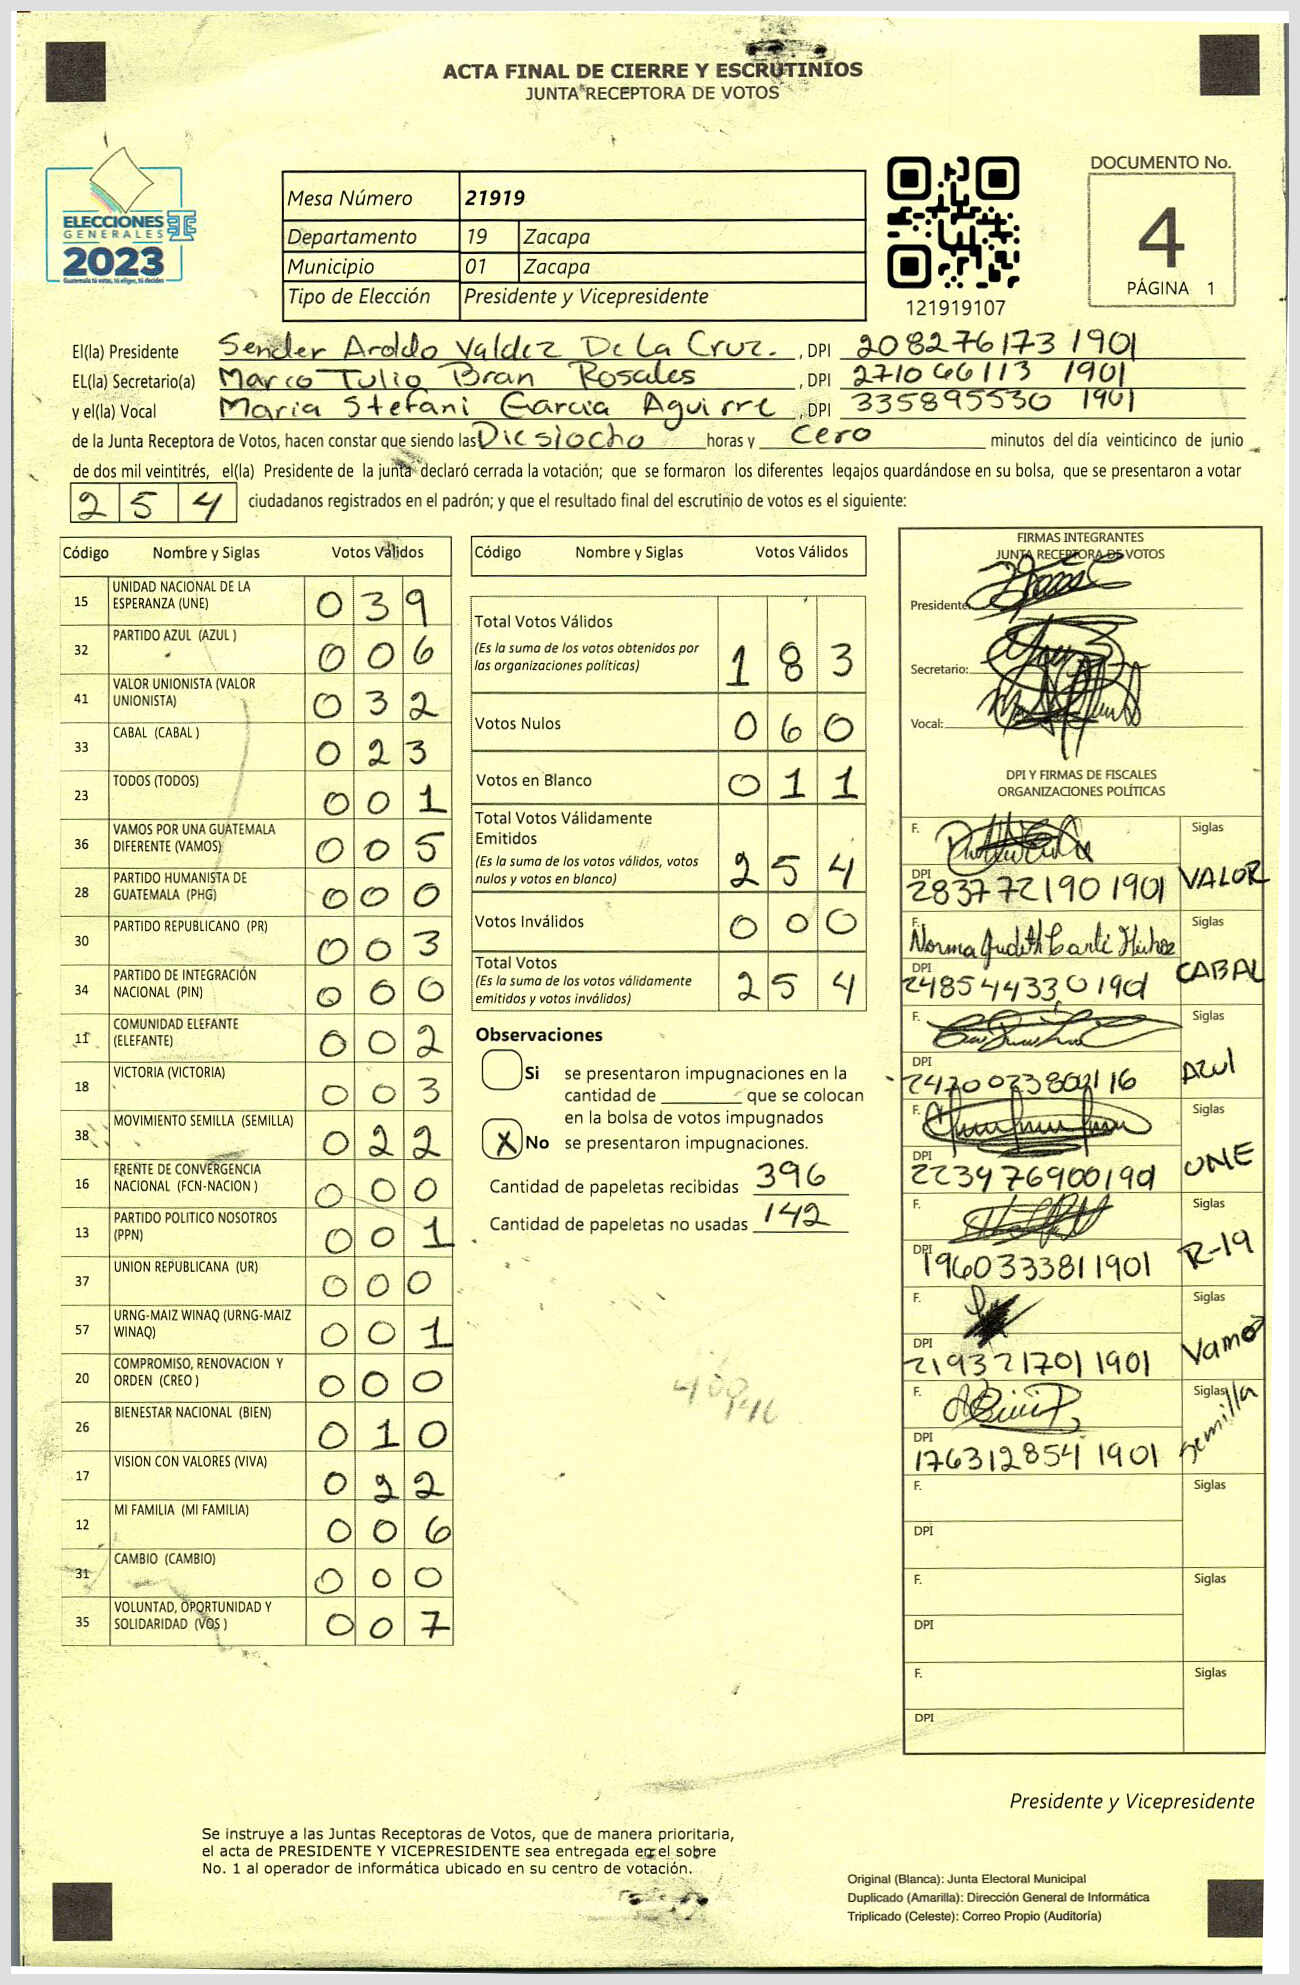 ACTA FINAL DE CIERRE Y ESCRUTINIOS
JUNTA RECEPTORA DE VOTOS
ELECCIONES
GENERALES
2023
Guatemala tú votas, tú eliges, tú decides
Mesa Número 21919
Departamento 19 Zacapa
Municipio 01 Zacapa
Tipo de Elección Presidente y Vicepresidente
121919107
DOCUMENTO No.
4
PÁGINA 1
El(la) Presidente Sender Aroldo Valdez De La Cruz. , DPI 208276173 1901
EL(la) Secretario(a) Marco Tulio Bran Rosales , DPI 271066113 1901
y el(la) Vocal Maria Stefani Garcia Aguirre , DPI 335895530 1901
de la Junta Receptora de Votos, hacen constar que siendo las Diesiocho horas y cero minutos del día veinticinco de junio
de dos mil veintitrés, el(la) Presidente de la junta declaró cerrada la votación; que se formaron los diferentes legajos quardándose en su bolsa, que se presentaron a votar
254 ciudadanos registrados en el padrón; y que el resultado final del escrutinio de votos es el siguiente:
Código Nombre y Siglas Votos Válidos
15 UNIDAD NACIONAL DE LA ESPERANZA (UNE) 039
32 PARTIDO AZUL (AZUL ) 006
41 VALOR UNIONISTA (VALOR UNIONISTA) 032
33 CABAL (CABAL ) 023
23 TODOS (TODOS) 001
36 VAMOS POR UNA GUATEMALA DIFERENTE (VAMOS) 005
28 PARTIDO HUMANISTA DE GUATEMALA (PHG) 000
30 PARTIDO REPUBLICANO (PR) 003
34 PARTIDO DE INTEGRACIÓN NACIONAL (PIN) 000
11 COMUNIDAD ELEFANTE (ELEFANTE) 002
18 VICTORIA (VICTORIA) 003
38 MOVIMIENTO SEMILLA (SEMILLA) 022
16 FRENTE DE CONVERGENCIA NACIONAL (FCN-NACION ) 000
13 PARTIDO POLITICO NOSOTROS (PPN) 001
37 UNION REPUBLICANA (UR) 000
57 URNG-MAIZ WINAQ (URNG-MAIZ WINAQ) 001
20 COMPROMISO, RENOVACION Y ORDEN (CREO ) 000
26 BIENESTAR NACIONAL (BIEN) 010
17 VISION CON VALORES (VIVA) 022
12 MI FAMILIA (MI FAMILIA) 006
31 CAMBIO (CAMBIO) 000
35 VOLUNTAD, OPORTUNIDAD Y SOLIDARIDAD (VOS ) 007
Código Nombre y Siglas Votos Válidos
Total Votos Válidos
(Es la suma de los votos obtenidos por
las organizaciones políticas) 183
Votos Nulos 060
Votos en Blanco 011
Total Votos Válidamente
Emitidos
(Es la suma de los votos válidos, votos
nulos y votos en blanco) 254
Votos Inválidos 000
Total Votos
(Es la suma de los votos válidamente
emitidos y votos inválidos) 254
Observaciones
Si se presentaron impugnaciones en la
cantidad de ________ que se colocan
en la bolsa de votos impugnados
X No se presentaron impugnaciones.
Cantidad de papeletas recibidas 396
Cantidad de papeletas no usadas 142
FIRMAS INTEGRANTES
JUNTA RECEPTORA DE VOTOS
Presidente:
Secretario:
Vocal:
DPI Y FIRMAS DE FISCALES
ORGANIZACIONES POLÍTICAS
F. Siglas
DPI 283772190 1901 VALOR
F. Norma Judith Siglas
DPI 248544330 1901 CABAL
F. Siglas
DPI AZUl
F. Siglas
DPI 223976900 1901 UNE
F. Siglas
DPI 196033381 1901 R-19
F. Siglas
DPI 219321701 1901 Vamos
F. Siglas
DPI 176312854 1901 Semilla
F. Siglas
DPI
F. Siglas
DPI
F. Siglas
DPI
Presidente y Vicepresidente
Se instruye a las Juntas Receptoras de Votos, que de manera prioritaria,
el acta de PRESIDENTE Y VICEPRESIDENTE sea entregada en el sobre
No. 1 al operador de informática ubicado en su centro de votación.
Original (Blanca): Junta Electoral Municipal
Duplicado (Amarilla): Dirección General de Informática
Triplicado (Celeste): Correo Propio (Auditoría)